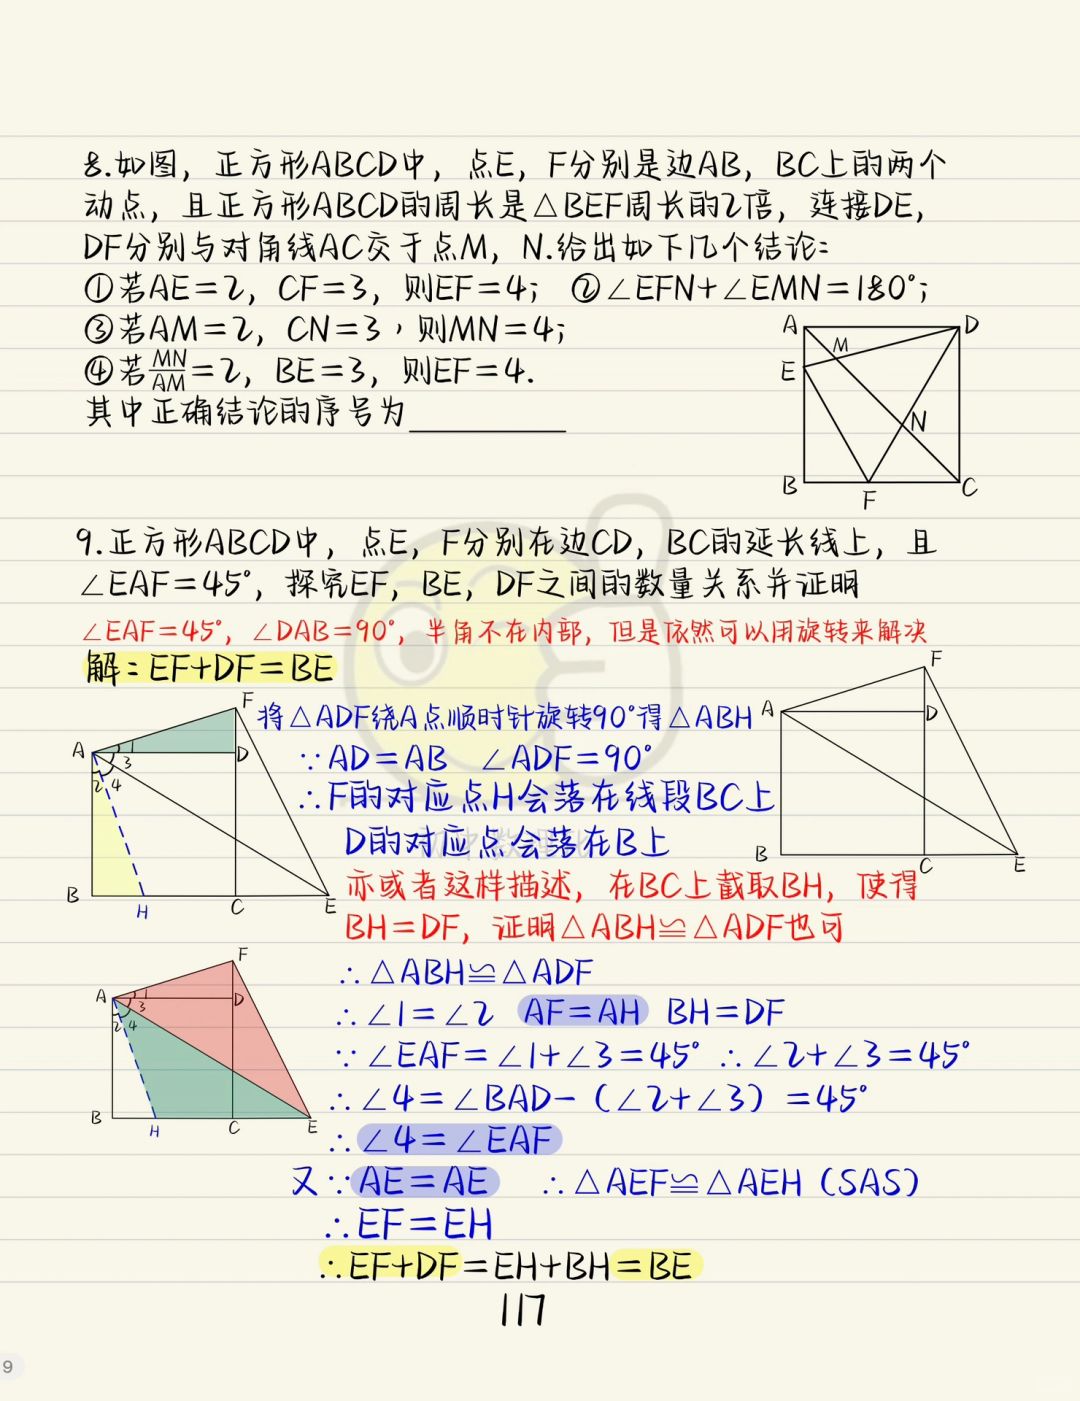 8.如图，正方形ABCD中，点E，F分别是边AB，BC上的两个
动点，且正方形ABCD的周长是△BEF周长的2倍，连接DE，
DF分别与对角线AC交于点M，N.给出如下几个结论：
①若AE=2，CF=3，则EF=4；②∠EFN+∠EMN=180°；
③若AM=2，CN=3，则MN=4；
④若MN/AM=2，BE=3，则EF=4.
其中正确结论的序号为
A
D
M
E
N
B
F
C
9.正方形ABCD中，点E，F分别在边CD，BC的延长线上，且
∠EAF=45°，探究EF，BE，DF之间的数量关系并证明
∠EAF=45°，∠DAB=90°，半角不在内部，但是依然可以用旋转来解决
解：EF+DF=BE
F
A
D
1
3
2
4
B
H
C
E
将△ADF绕A点顺时针旋转90°得△ABH
∵AD=AB ∠ADF=90°
∴F的对应点H会落在线段BC上
D的对应点会落在B上
F
A
D
B
C
E
亦或者这样描述，在BC上截取BH，使得
BH=DF，证明△ABH≌△ADF也可
F
A
D
1
3
2
4
B
H
C
E
∴△ABH≌△ADF
∴∠1=∠2 AF=AH BH=DF
∵∠EAF=∠1+∠3=45° ∴∠2+∠3=45°
∴∠4=∠BAD-（∠2+∠3）=45°
∴∠4=∠EAF
又∵AE=AE ∴△AEF≌△AEH（SAS）
∴EF=EH
∴EF+DF=EH+BH=BE
117
9